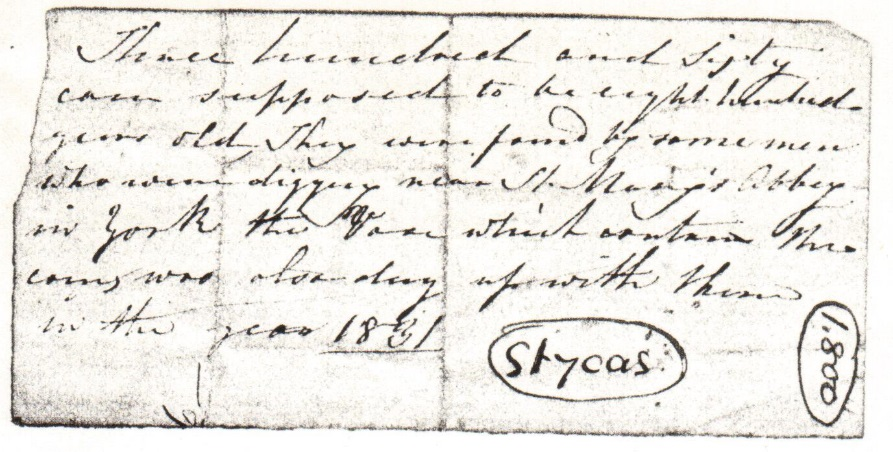 Three hundred and sixty
coin supposed to be eight hundred
years old, They were found by some men
who were digging near St. Mary's Abbey
in York the Vase which contain the
coins was also dug up with them
in the year 1831
Stycas
1,800